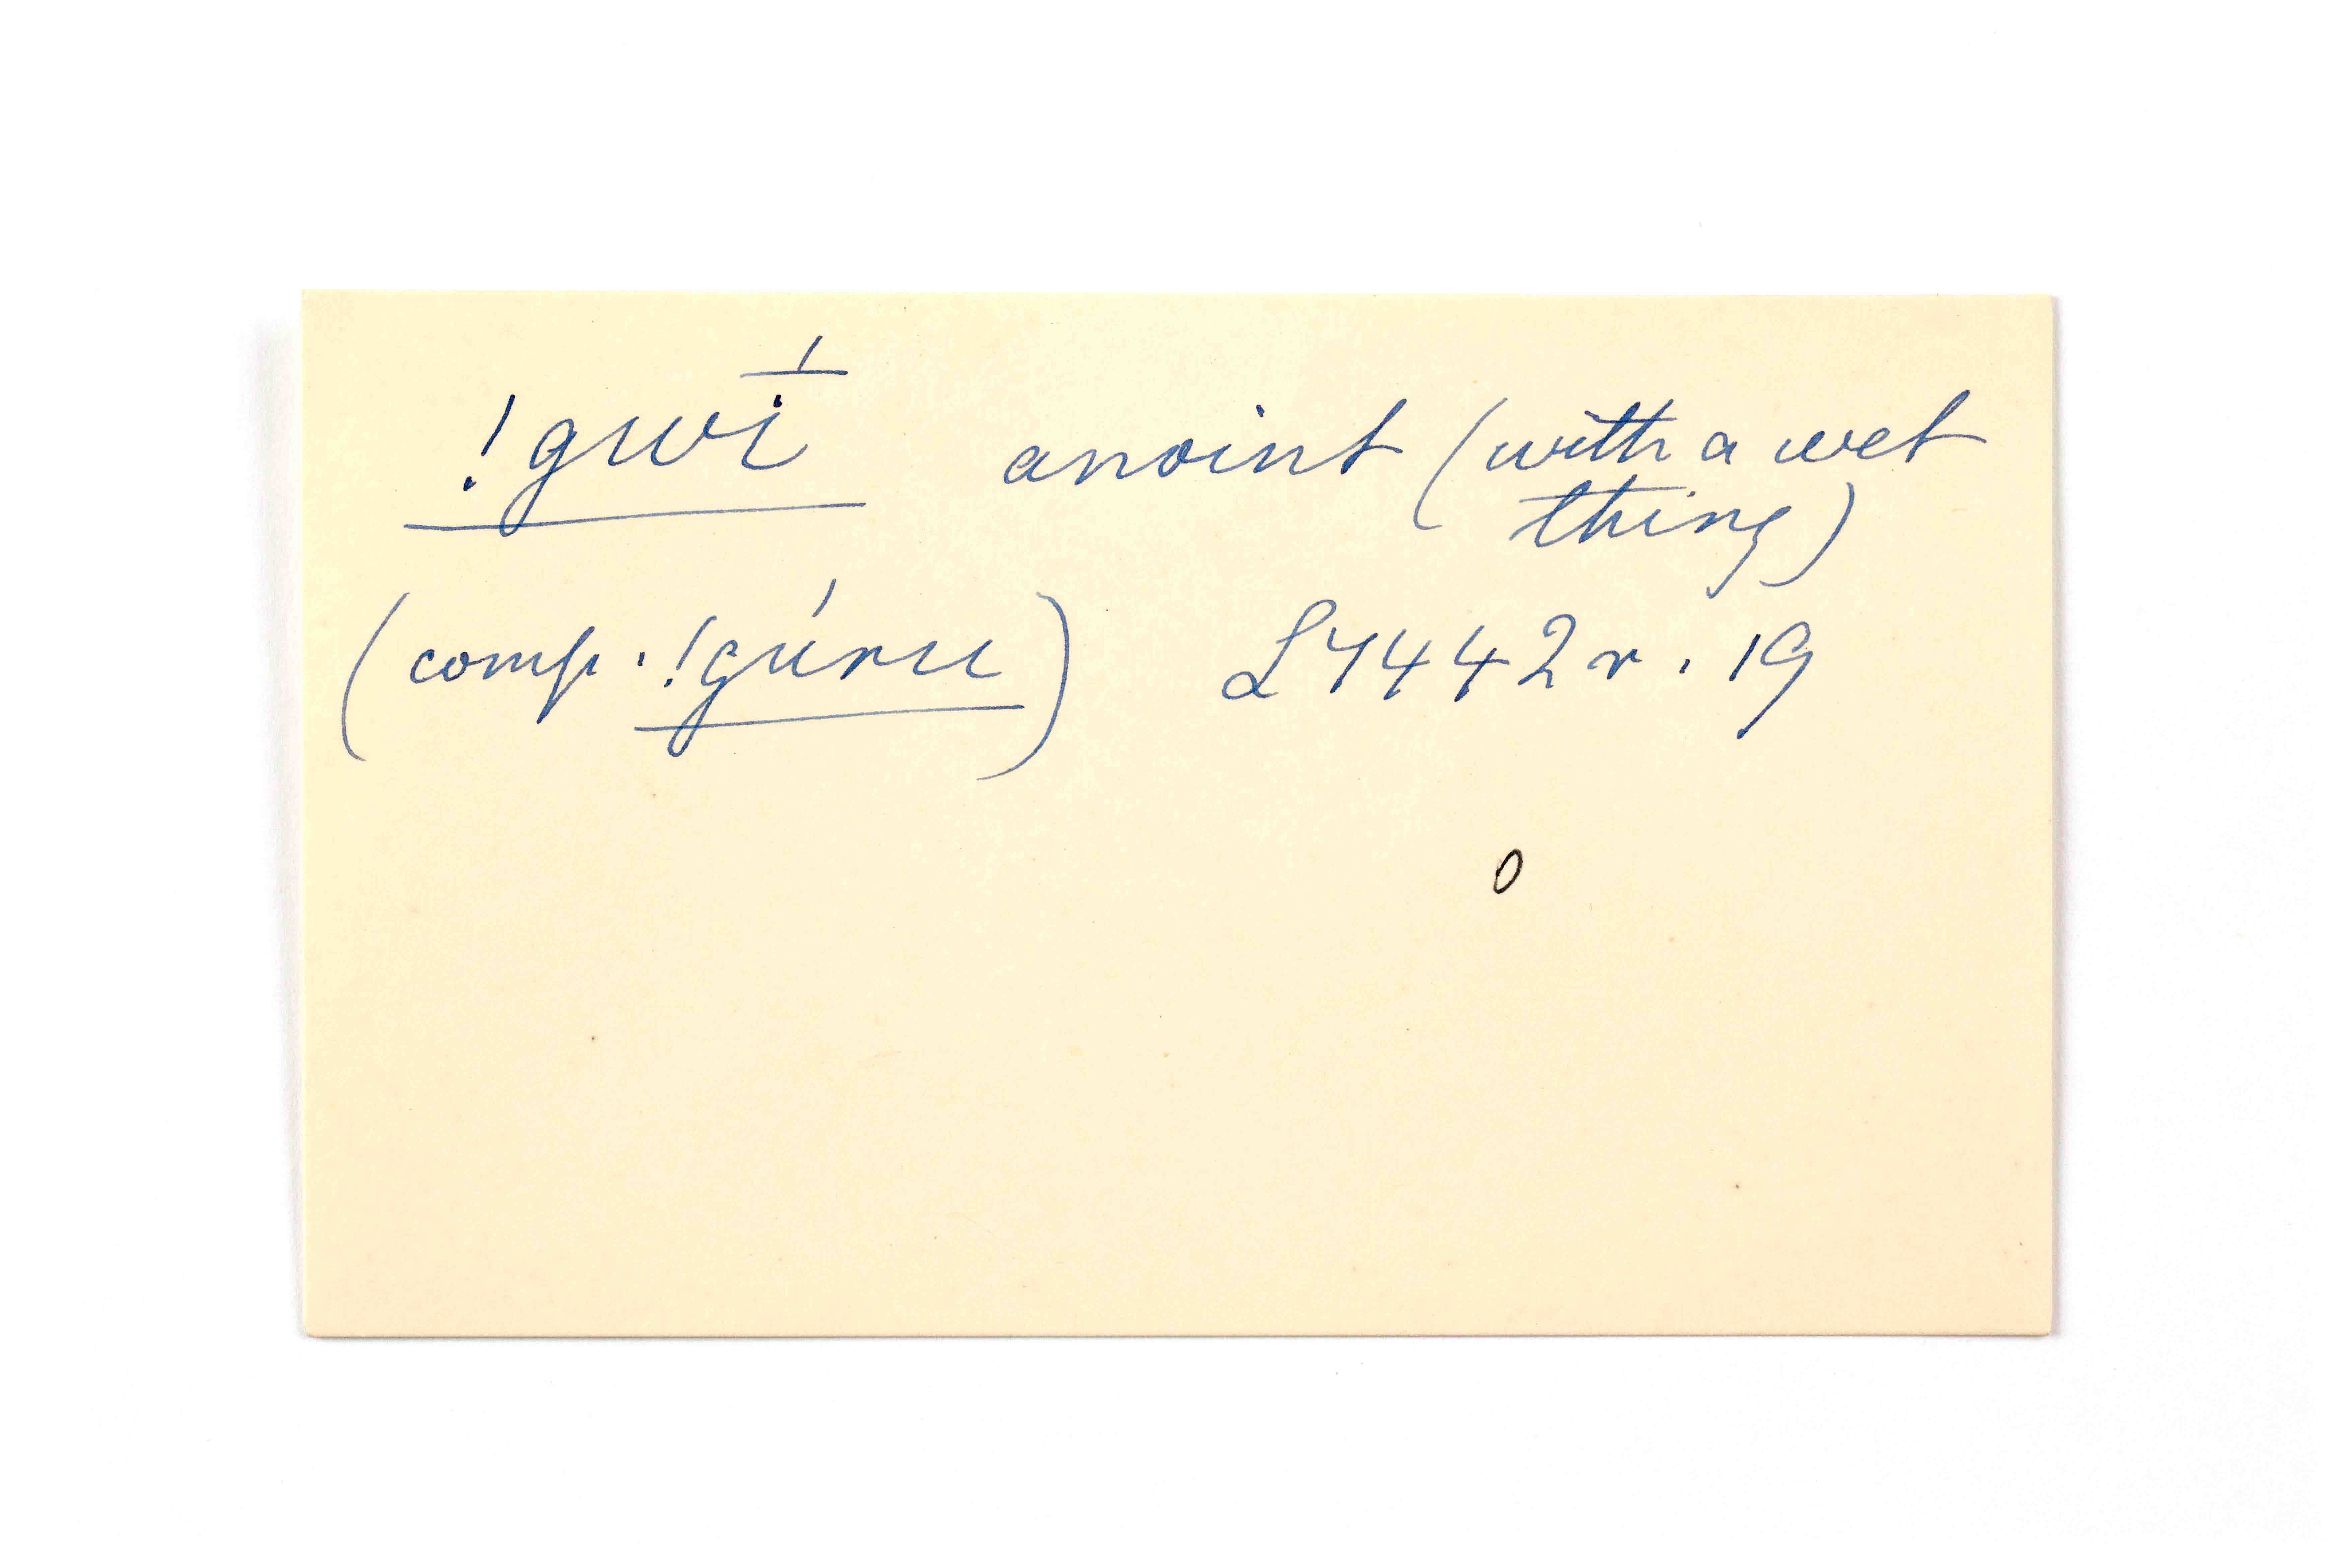 !guvī́ anoint (with a wet
thing)
(comp. !gúru) L7442r. 19
0